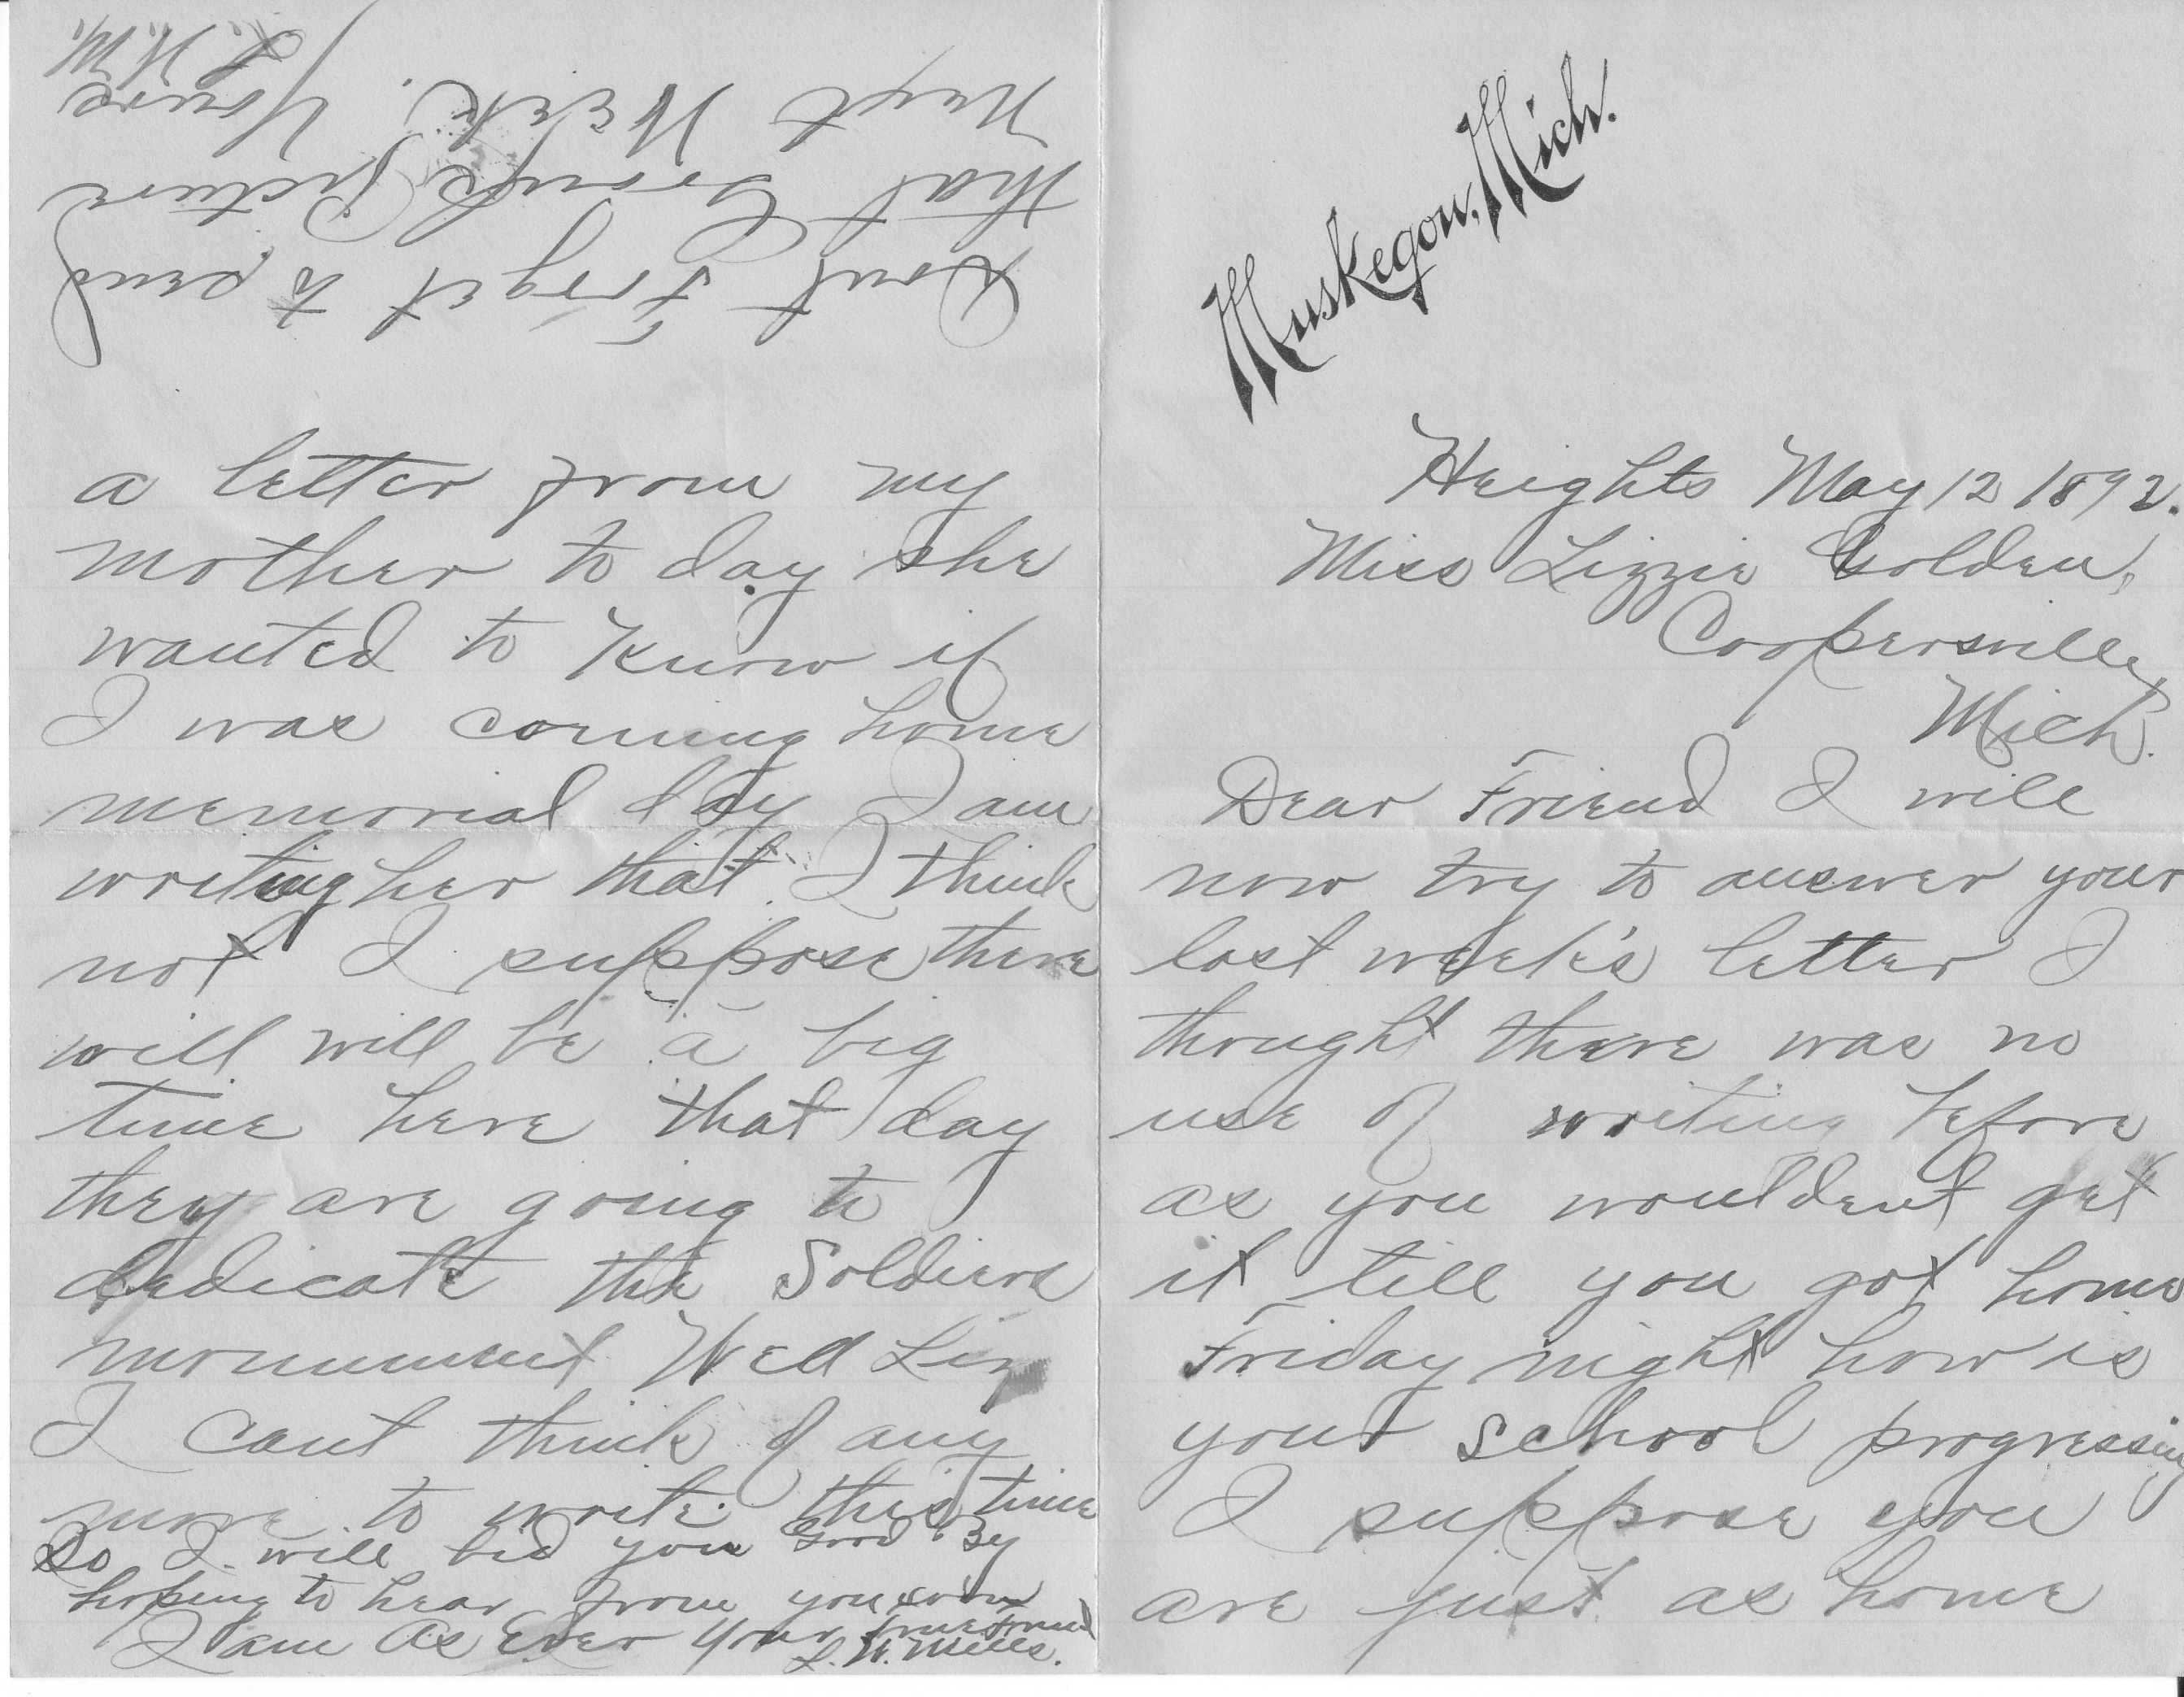 Muskegon, Mich.
Heights May 12 1892.
Miss Lizzie Golden,
Coopersville
Mich.
Dear Friend I will
now try to answer your
last week's letter I
thought there was no
use of writing before
as you wouldent get
it till you got home
Friday night how is
your school progressing
I suppose you
are just as home
a letter from my
mother to day she
wanted to know if
I was coming home
memorial day I am
writing her that I think
not I suppose there
will will be a big
time here that day
they are going to
dedicate the Soldiers
monument Well Liz
I cant think of any
more to write this time
So I will bid you Good By
hoping to hear from you soon
I am As Ever Your true friend
L. W. Mills.
Dont Forget to send
that Group Picture
Next Week. Yours
L. W. M.